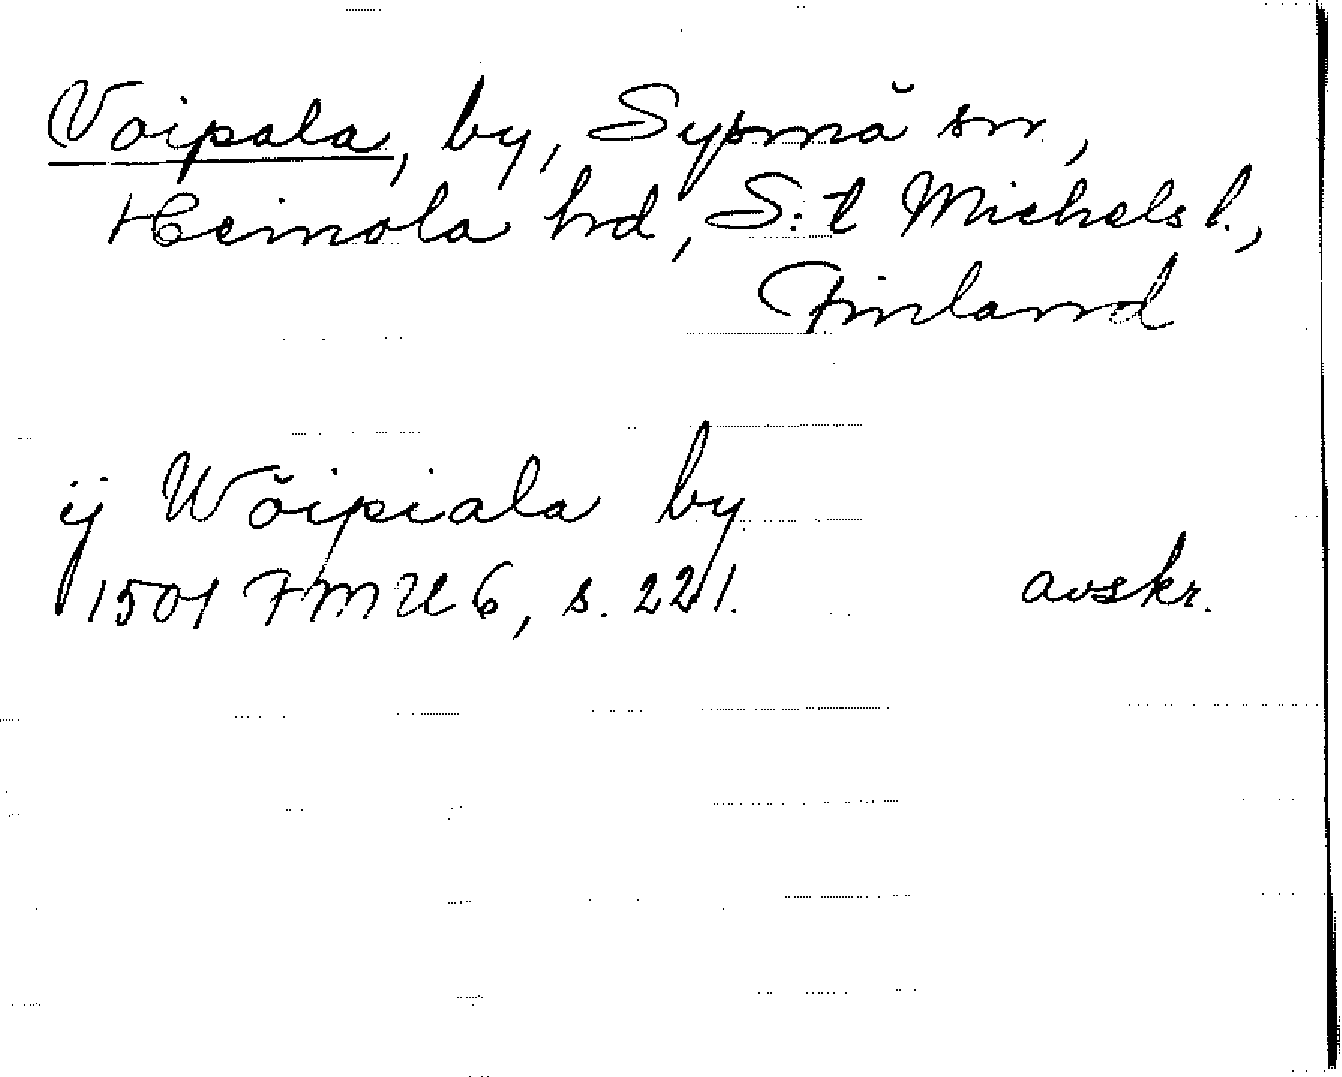 Voipala, by, Sysmä sn,
Heinola hd, S:t Michels l.,
Finland
ij Wöipiala by
1501 FMU 6, s. 221. avskr.